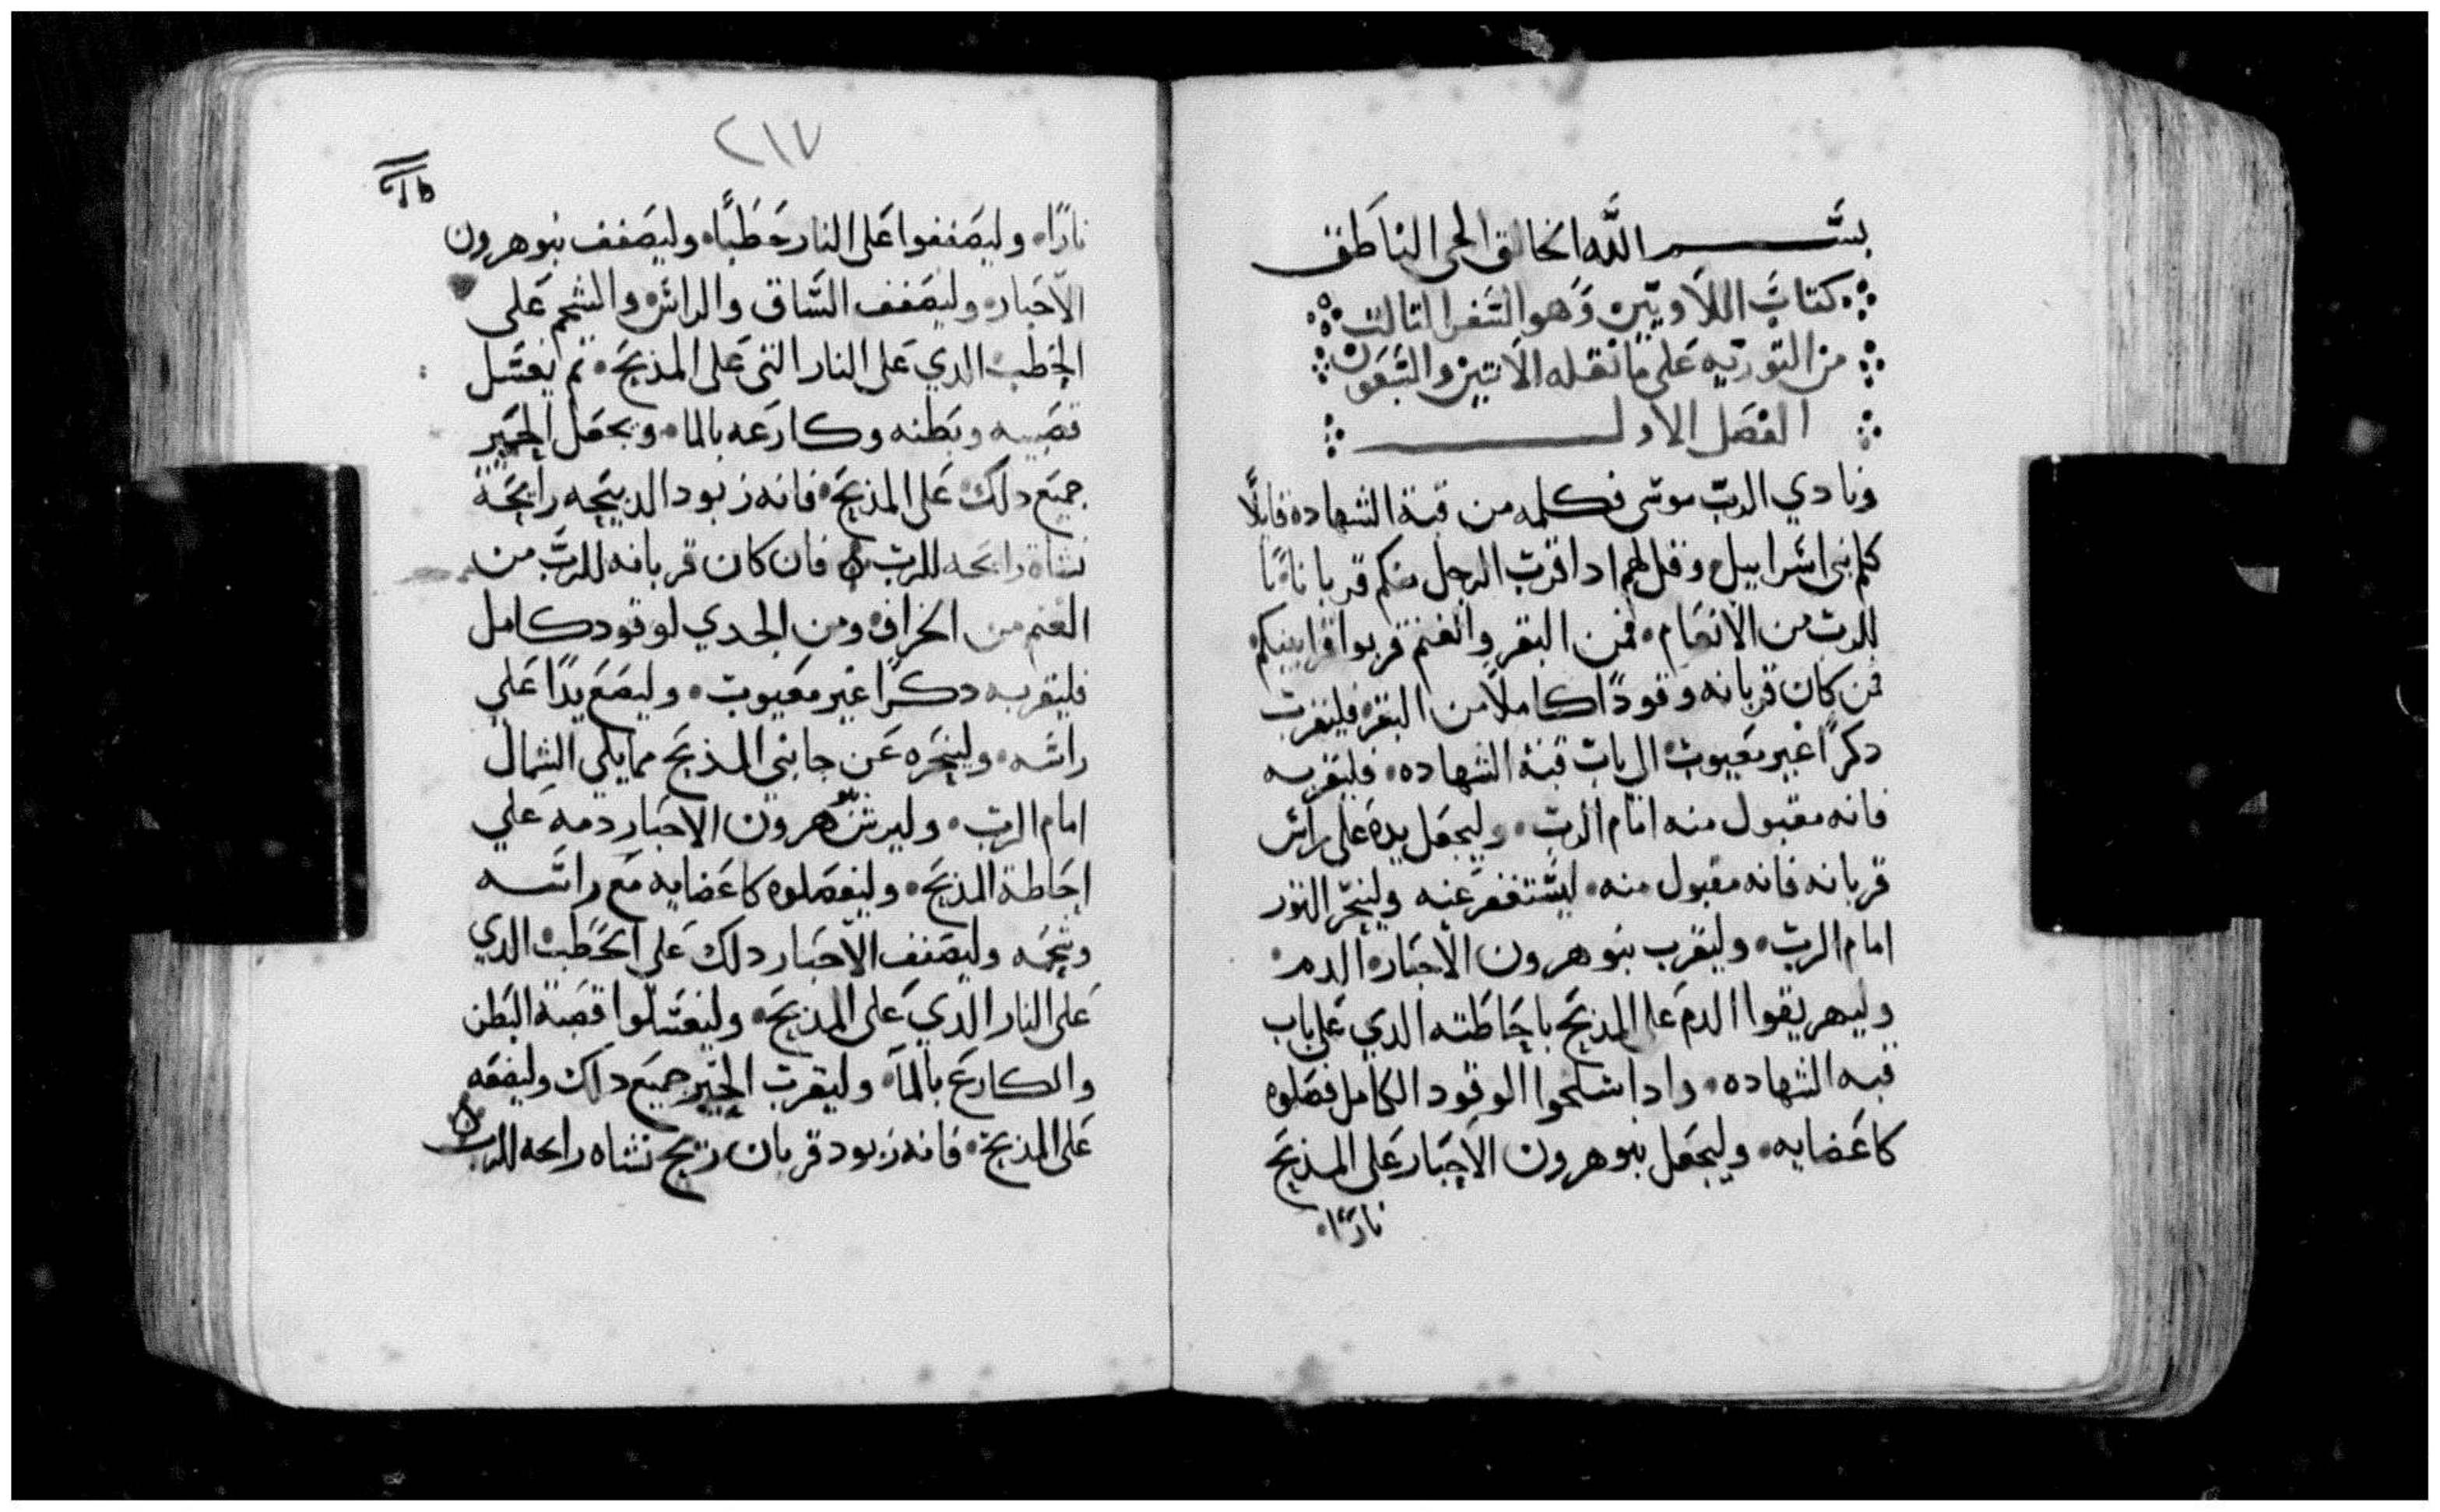 بسم الله الخالق الحي الناطق
كتاب اللاويين وهو السفر التالت
من التوريه على ما نقله الاتنين والسبعون
الفصل الاول
ونادي الرب موسى فكلمه من قبة الشهاده قايلًا
كلم بني اسراييل وقل لهم ادا قرب الرجل منكم قربانًا
للرب من الانعام فمن البقر والغنم قربوا قرابينكم
فمن كان قربانه وقودًا كاملًا من البقر فليقرب
دكرًا غير معيوب الى باب قبة الشهاده فليقربه
فانه مقبول منه امام الرب وليجعل يده على راس
قربانه فانه مقبول منه ليستغفر عنه ولينحر التور
امام الرب وليقرب بنو هرون الاحبار الدم
وليهريقوا الدم على المذبح باحاطته الدي على باب
قبه الشهاده وادا سلخوا الوقود الكامل فصلوه
كاعضايه وليجعل بنو هرون الاحبار على المذبح
نارًا
٢١٧
نارًا وليصففوا على النار حطبًا وليصفف بنو هرون
الاحبار وليصفف الساق والراس والشحم على
الحطب الدي على النار التي على المذبح تم يغسل
قصبه وبطنه وكارعه بالما ويجعل الحبر
جميع دلك على المذبح فانه زبود الدبيحه رايحة
نشاة رايحه للرب فان كان قربانه للرب من
الغنم من الخراف ومن الجدي لوقود كامل
فليقربه دكرًا غير معيوب وليضع يدًا علي
راسه ولينحره عن جانبي المذبح مما يلي الشمال
امام الرب وليرش بنو هرون الاحبار دمه علي
احاطة المذبح وليفصلوه كاعضايه مع راسه
وشحمه وليصفف الاحبار دلك على الحطب الدي
على النار الدي على المذبح وليغسلوا قصبة البطن
والكارع بالما وليقرب الحبر جميع دلك وليضعه
على المذبح فانه زبود قربان ريح نشاه رايحه للرب